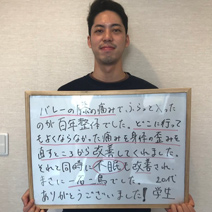 バレーのうでの痛みで、ふらっと入った
のが百年整体でした。どこに行って
もよくならなかった痛みを身体の歪みを
直すところから改善してくれました。
それと同時に不眠も改善され、
まさに一石二鳥でした。 20代
ありがとうございました! 学生